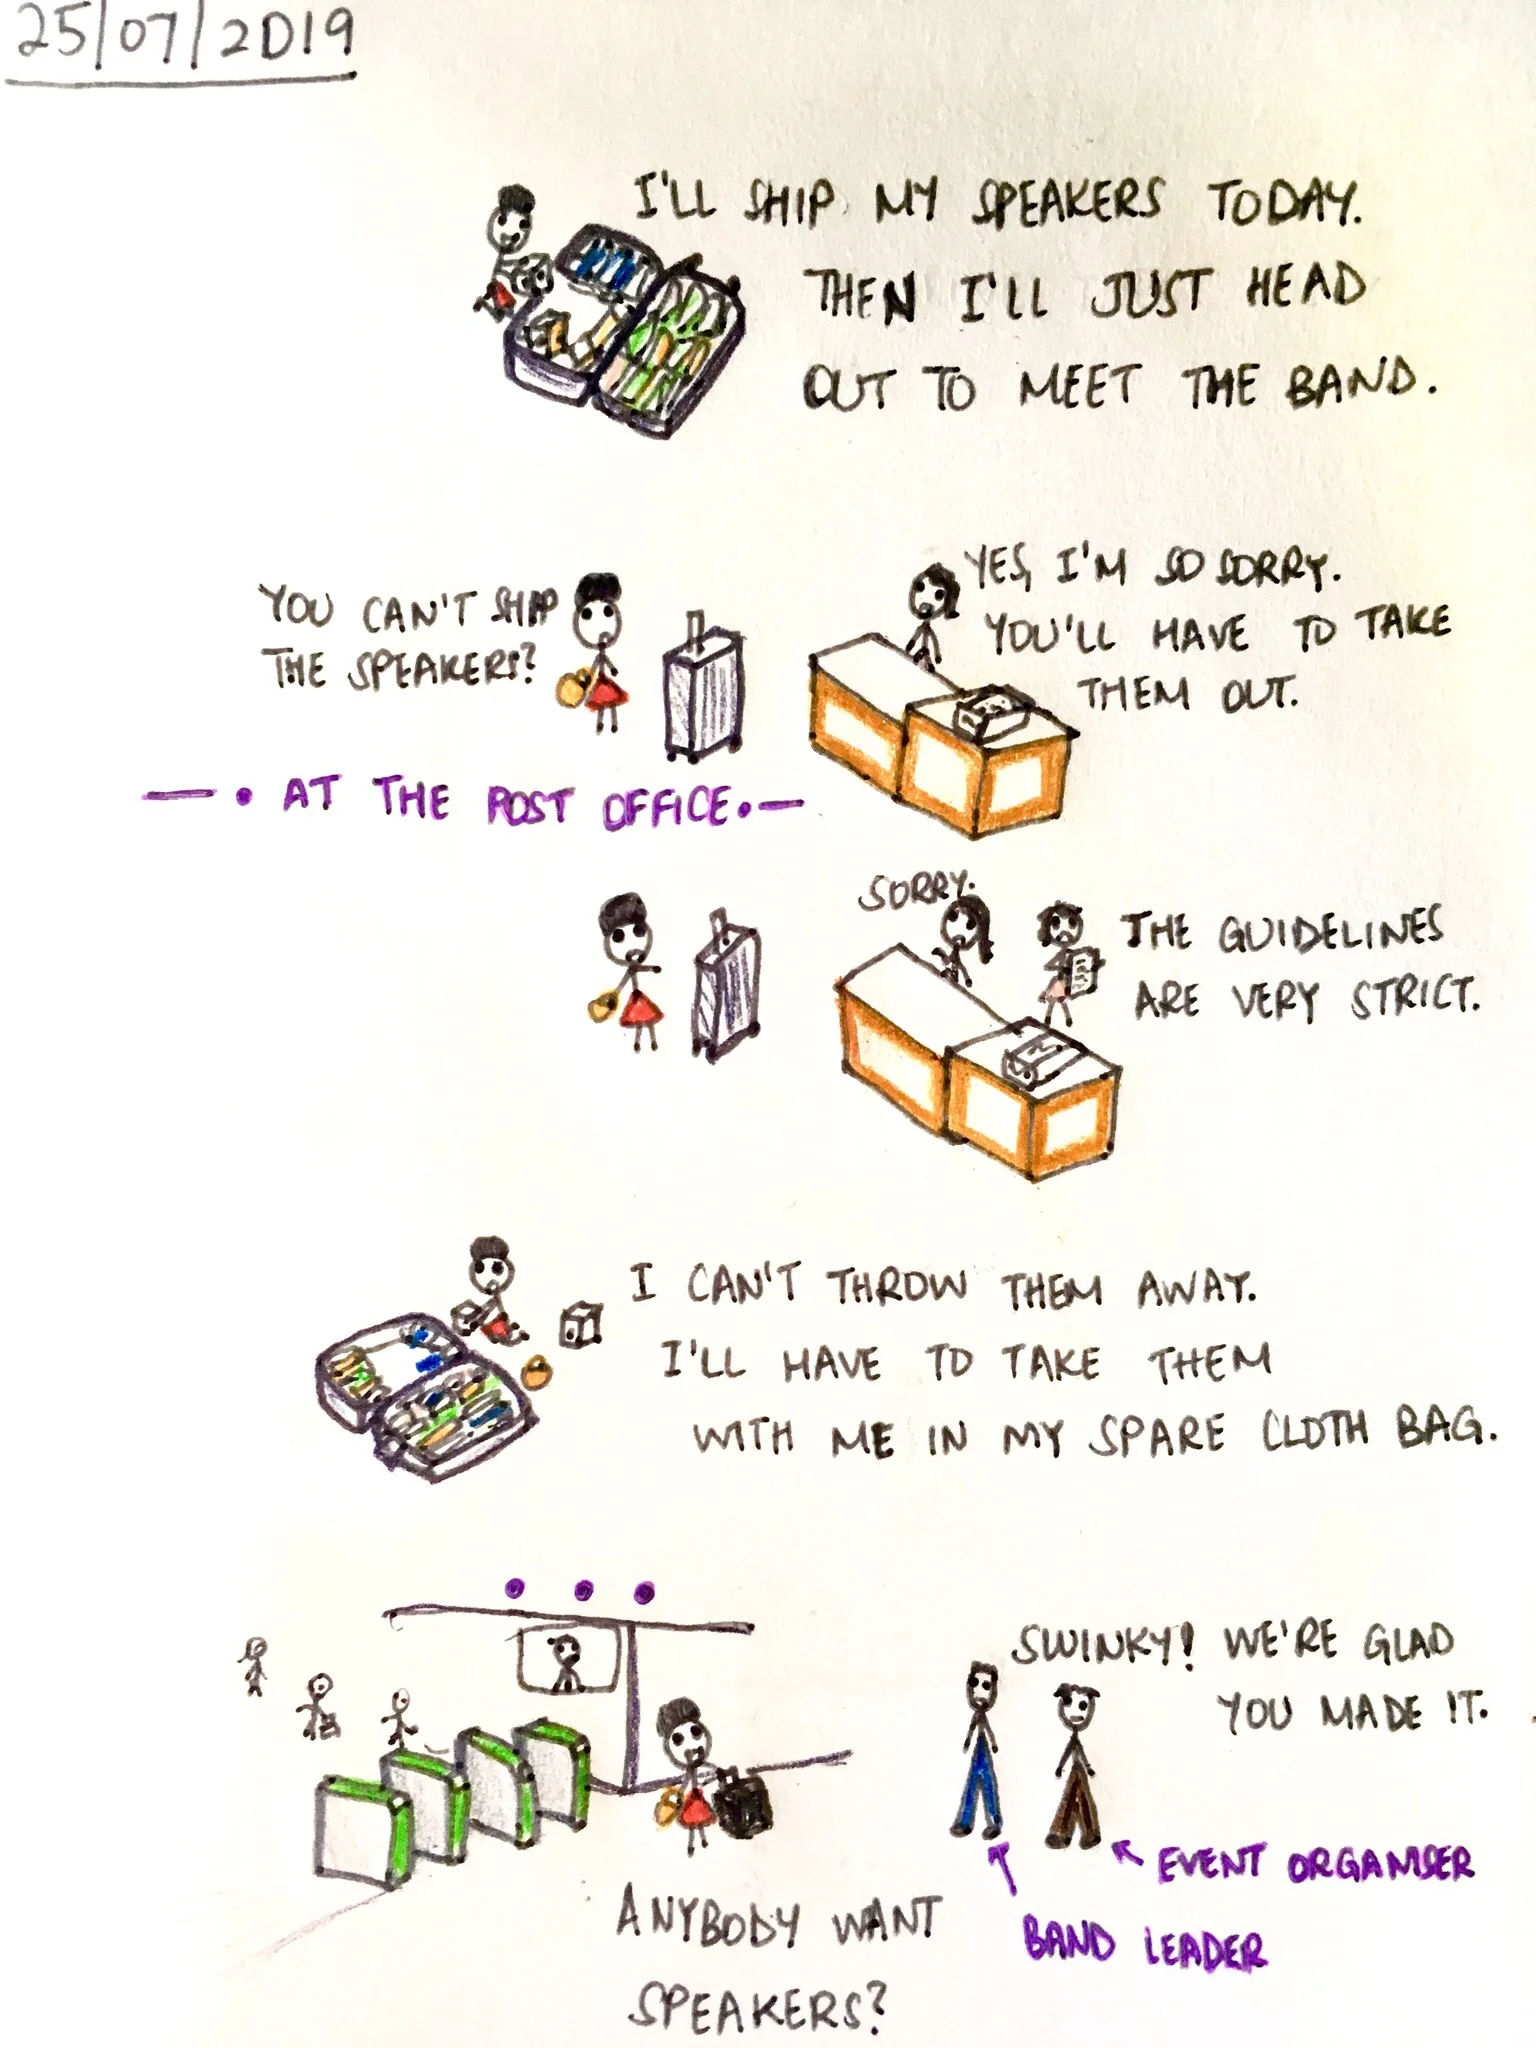 25/07/2019
I'LL SHIP MY SPEAKERS TODAY.
THEN I'LL JUST HEAD
OUT TO MEET THE BAND.
YOU CAN'T SHIP
THE SPEAKERS?
YES, I'M SO SORRY.
YOU'LL HAVE TO TAKE
THEM OUT.
AT THE POST OFFICE.
SORRY.
THE GUIDELINES
ARE VERY STRICT.
I CAN'T THROW THEM AWAY.
I'LL HAVE TO TAKE THEM
WITH ME IN MY SPARE CLOTH BAG.
SWINKY! WE'RE GLAD
YOU MADE IT.
EVENT ORGANISER
BAND LEADER
ANYBODY WANT
SPEAKERS?